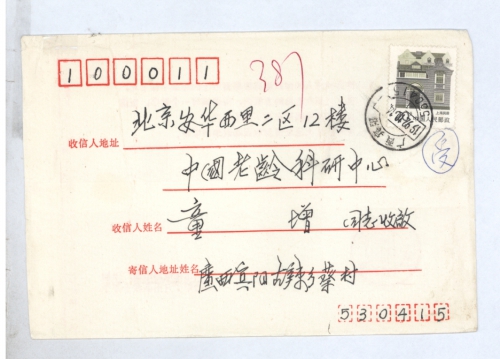 100011
387
收信人地址 北京安华西里二区12楼
中國老龄科研中心
收信人姓名 童 增 同志收启
寄信人地址姓名 廣西宾阳 乡蔡村
530415
受